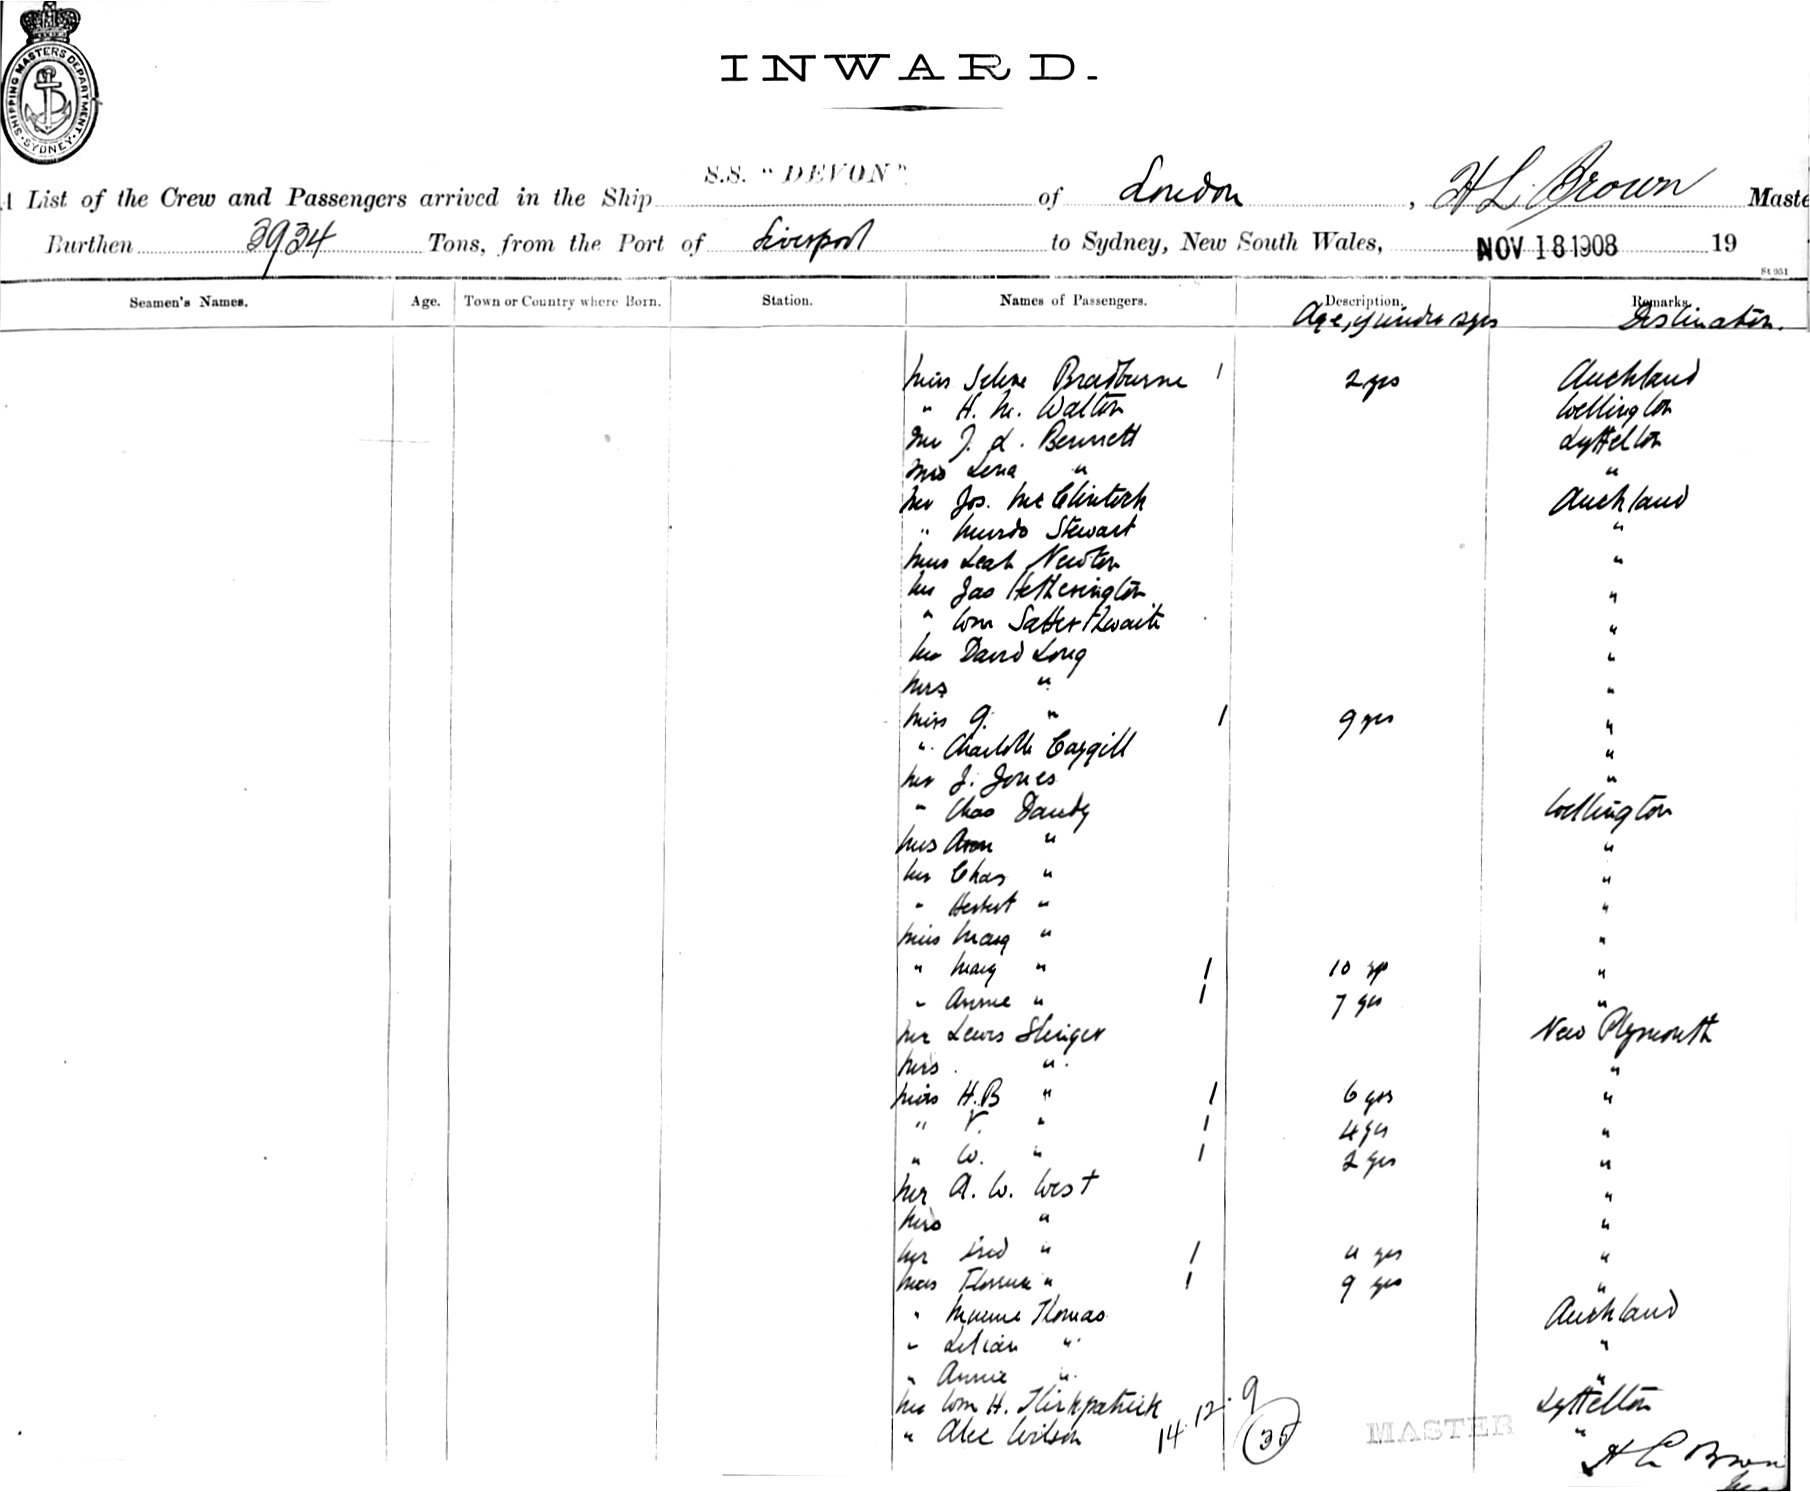 SHIPPING MASTERS DEPARTMENT · SYDNEY ·
INWARD.
A List of the Crew and Passengers arrived in the Ship S.S. "DEVON" of London, H L Brown Maste
Burthen 3934 Tons, from the Port of Liverpool to Sydney, New South Wales, NOV 18 1908 19
St 951
Seamen's Names. Age. Town or Country where Born. Station. Names of Passengers. Description. Remarks.
Age, if under 12 yrs Destination.
Miss Selene Bradburne 1 2 yrs Auckland
" H. M. Walton Wellington
Mr J. L. Bennett Lyttelton
Mrs Lena " "
Mr Jos. McClintock Auckland
" Murdo Stewart "
Miss Leah Newton "
Mr Jas Hetherington "
" Wm Satterthwaite "
Mr David Long "
Mrs " "
Miss G. " 1 9 yrs "
" Charlotte Cargill "
Mr J. Jones "
" Chas Dandy Wellington
Mrs Ann " "
Mr Chas " "
" Herbert " "
Miss Marg " "
" Mary " 1 10 yrs "
" Annie " 1 7 yrs "
Mr Lewis Slinger New Plymouth
Mrs " "
Miss H.B " 1 6 yrs "
" V. " 1 4 yrs "
" W. " 1 2 yrs "
Mr A. W. West "
Mrs " "
Mr Fred " 1 11 yrs "
Miss Florence " 1 9 yrs "
" Thomas Auckland
" Lilian " "
" Annie " "
Mr Wm H. Kirkpatrick Lyttelton
" Alec Wilson 14.12.9 35 "
MASTER
H L Brown